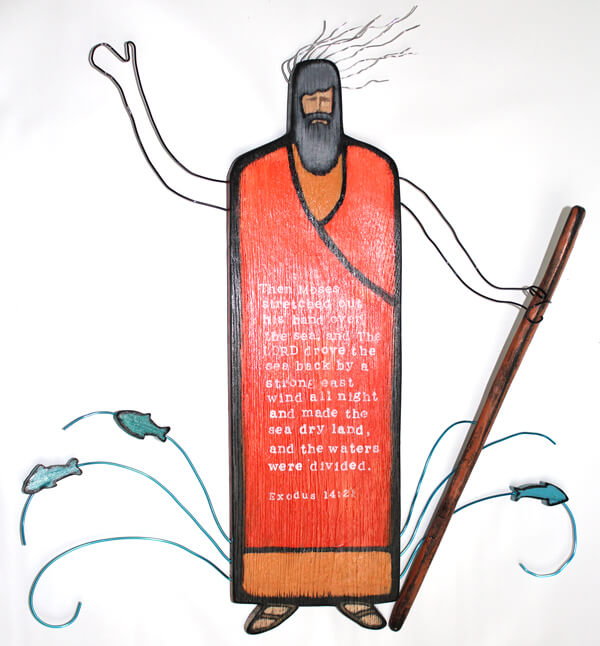 Then Moses
stretched out
his hand over
the sea, and The
LORD drove the
sea back by a
strong east
wind all night
and made the
sea dry land,
and the waters
were divided.
Exodus 14:21